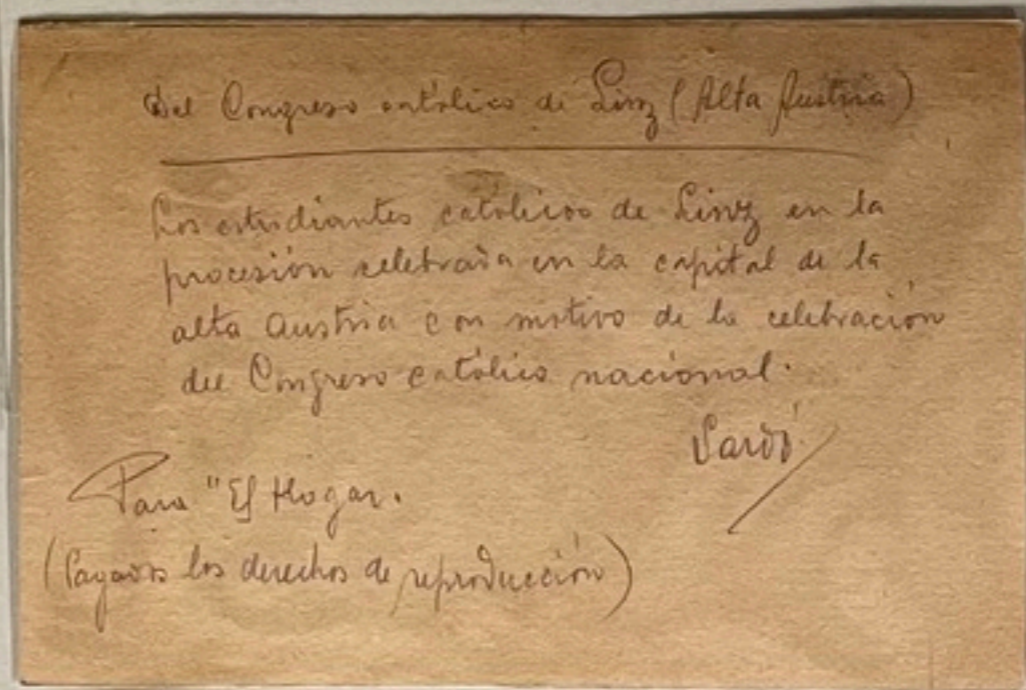 Del Congreso católico de Linz (Alta Austria)
Los estudiantes católicos de Linz en la
procesión celebrada en la capital de la
alta Austria con motivo de la celebración
del Congreso católico nacional.
Sardó
Para "El Hogar.
(Pagados los derechos de reproducción)